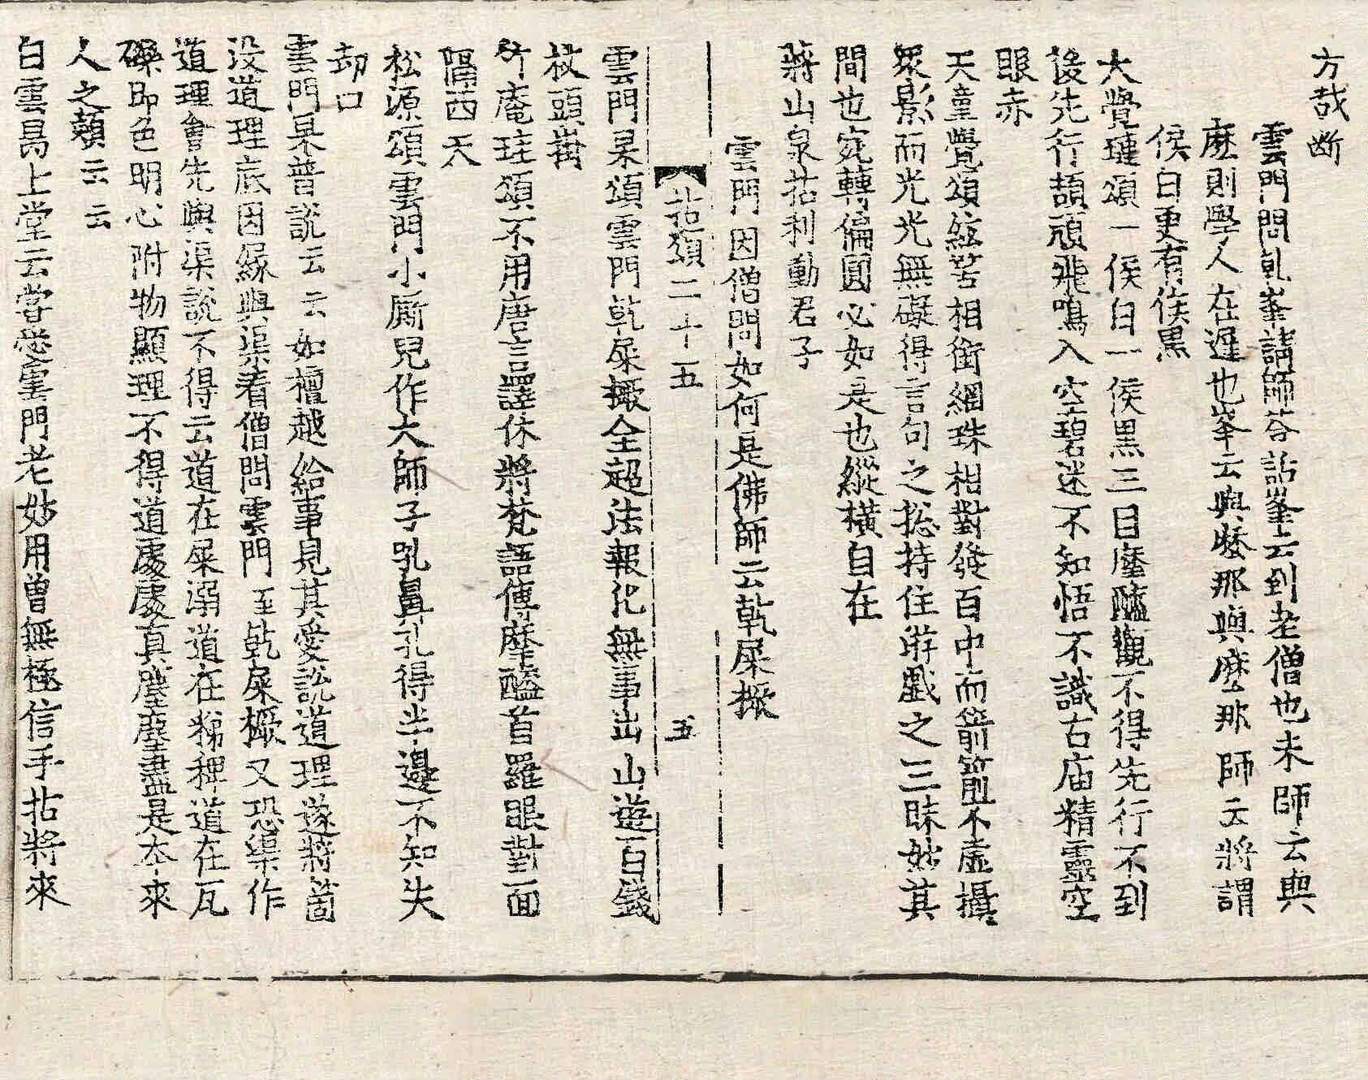 方哉斷
雲門問乾峯請師荅話峯云到老僧也未師云與
麽則學人在遲也峯云與麽那與麽那師云將謂
侯白更有侯黑
大覺璉頌一侯白一侯黑三目塵䤈觀不得先行不到
後先行頡頏飛鳴入空碧迷不知悟不識古庙精靈空
眼赤
天童覺頌絃筈相銜網珠相對發百中而箭箭不虛攝
衆影而光光無礙得言句之捴持住遊戲之三昧妙其
間也宛轉偏圓必如是也縱橫自在
蔣山泉拈利動君子
雲門因僧問如何是佛師云乾屎橛
拈頌二十五 五
雲門杲頌雲門乾屎橛全超法報化無事出山遊百錢
杖頭掛
竹庵珪頌不用唐言譯休將梵語傳摩醯首羅眼對面
隔西天
松源頌雲門小廝兒作大師子吼鼻孔得半邊不知失
却口
雲門杲普說云云如檀越給事見其愛說道理遂將箇
没道理底因緣與渠看僧問雲門至乾屎橛又恐渠作
道理會先與渠說不得云道在屎溺道在稊稗道在瓦
礫即色明心附物顯理不得道處處真塵塵盡是本來
人之類云云
白雲昺上堂云嘗愛雲門老妙用曾無極信手拈將來